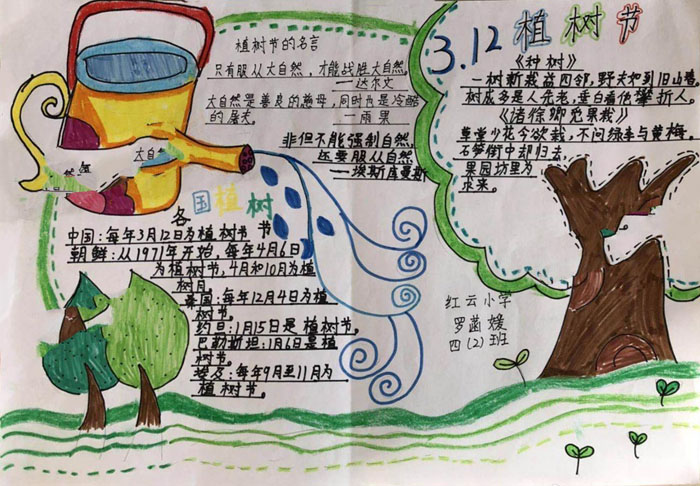 植树节的名言
只有服从大自然,才能战胜大自然。
—达尔文
大自然是善良的慈母,同时也是冷酷
的屠夫。 —雨果
非但不能强制自然,
还要服从自然。
—埃斯库曼斯
大自然
各国植树
中国:每年3月12日为植树节 节
朝鲜:从1971年开始,每年4月6日
为植树节,4月和10月为植
树月。
国:每年12月4日为植
树节。
约旦:1月15日是植树节。
巴勒斯坦:1月6日是植
树节。
埃及:每年9月至11月为
植树节。
3.12植树节
《种树》
一树新栽益四邻,野夫如到旧山春。
树成多是人先老,垂白看他攀折人。
《诣徐卿觅果栽》
草堂少花今欲栽,不问绿李与黄梅。
石笋街中却归去
果园坊里为
求来。
红云小学
罗菡媛
四(2)班